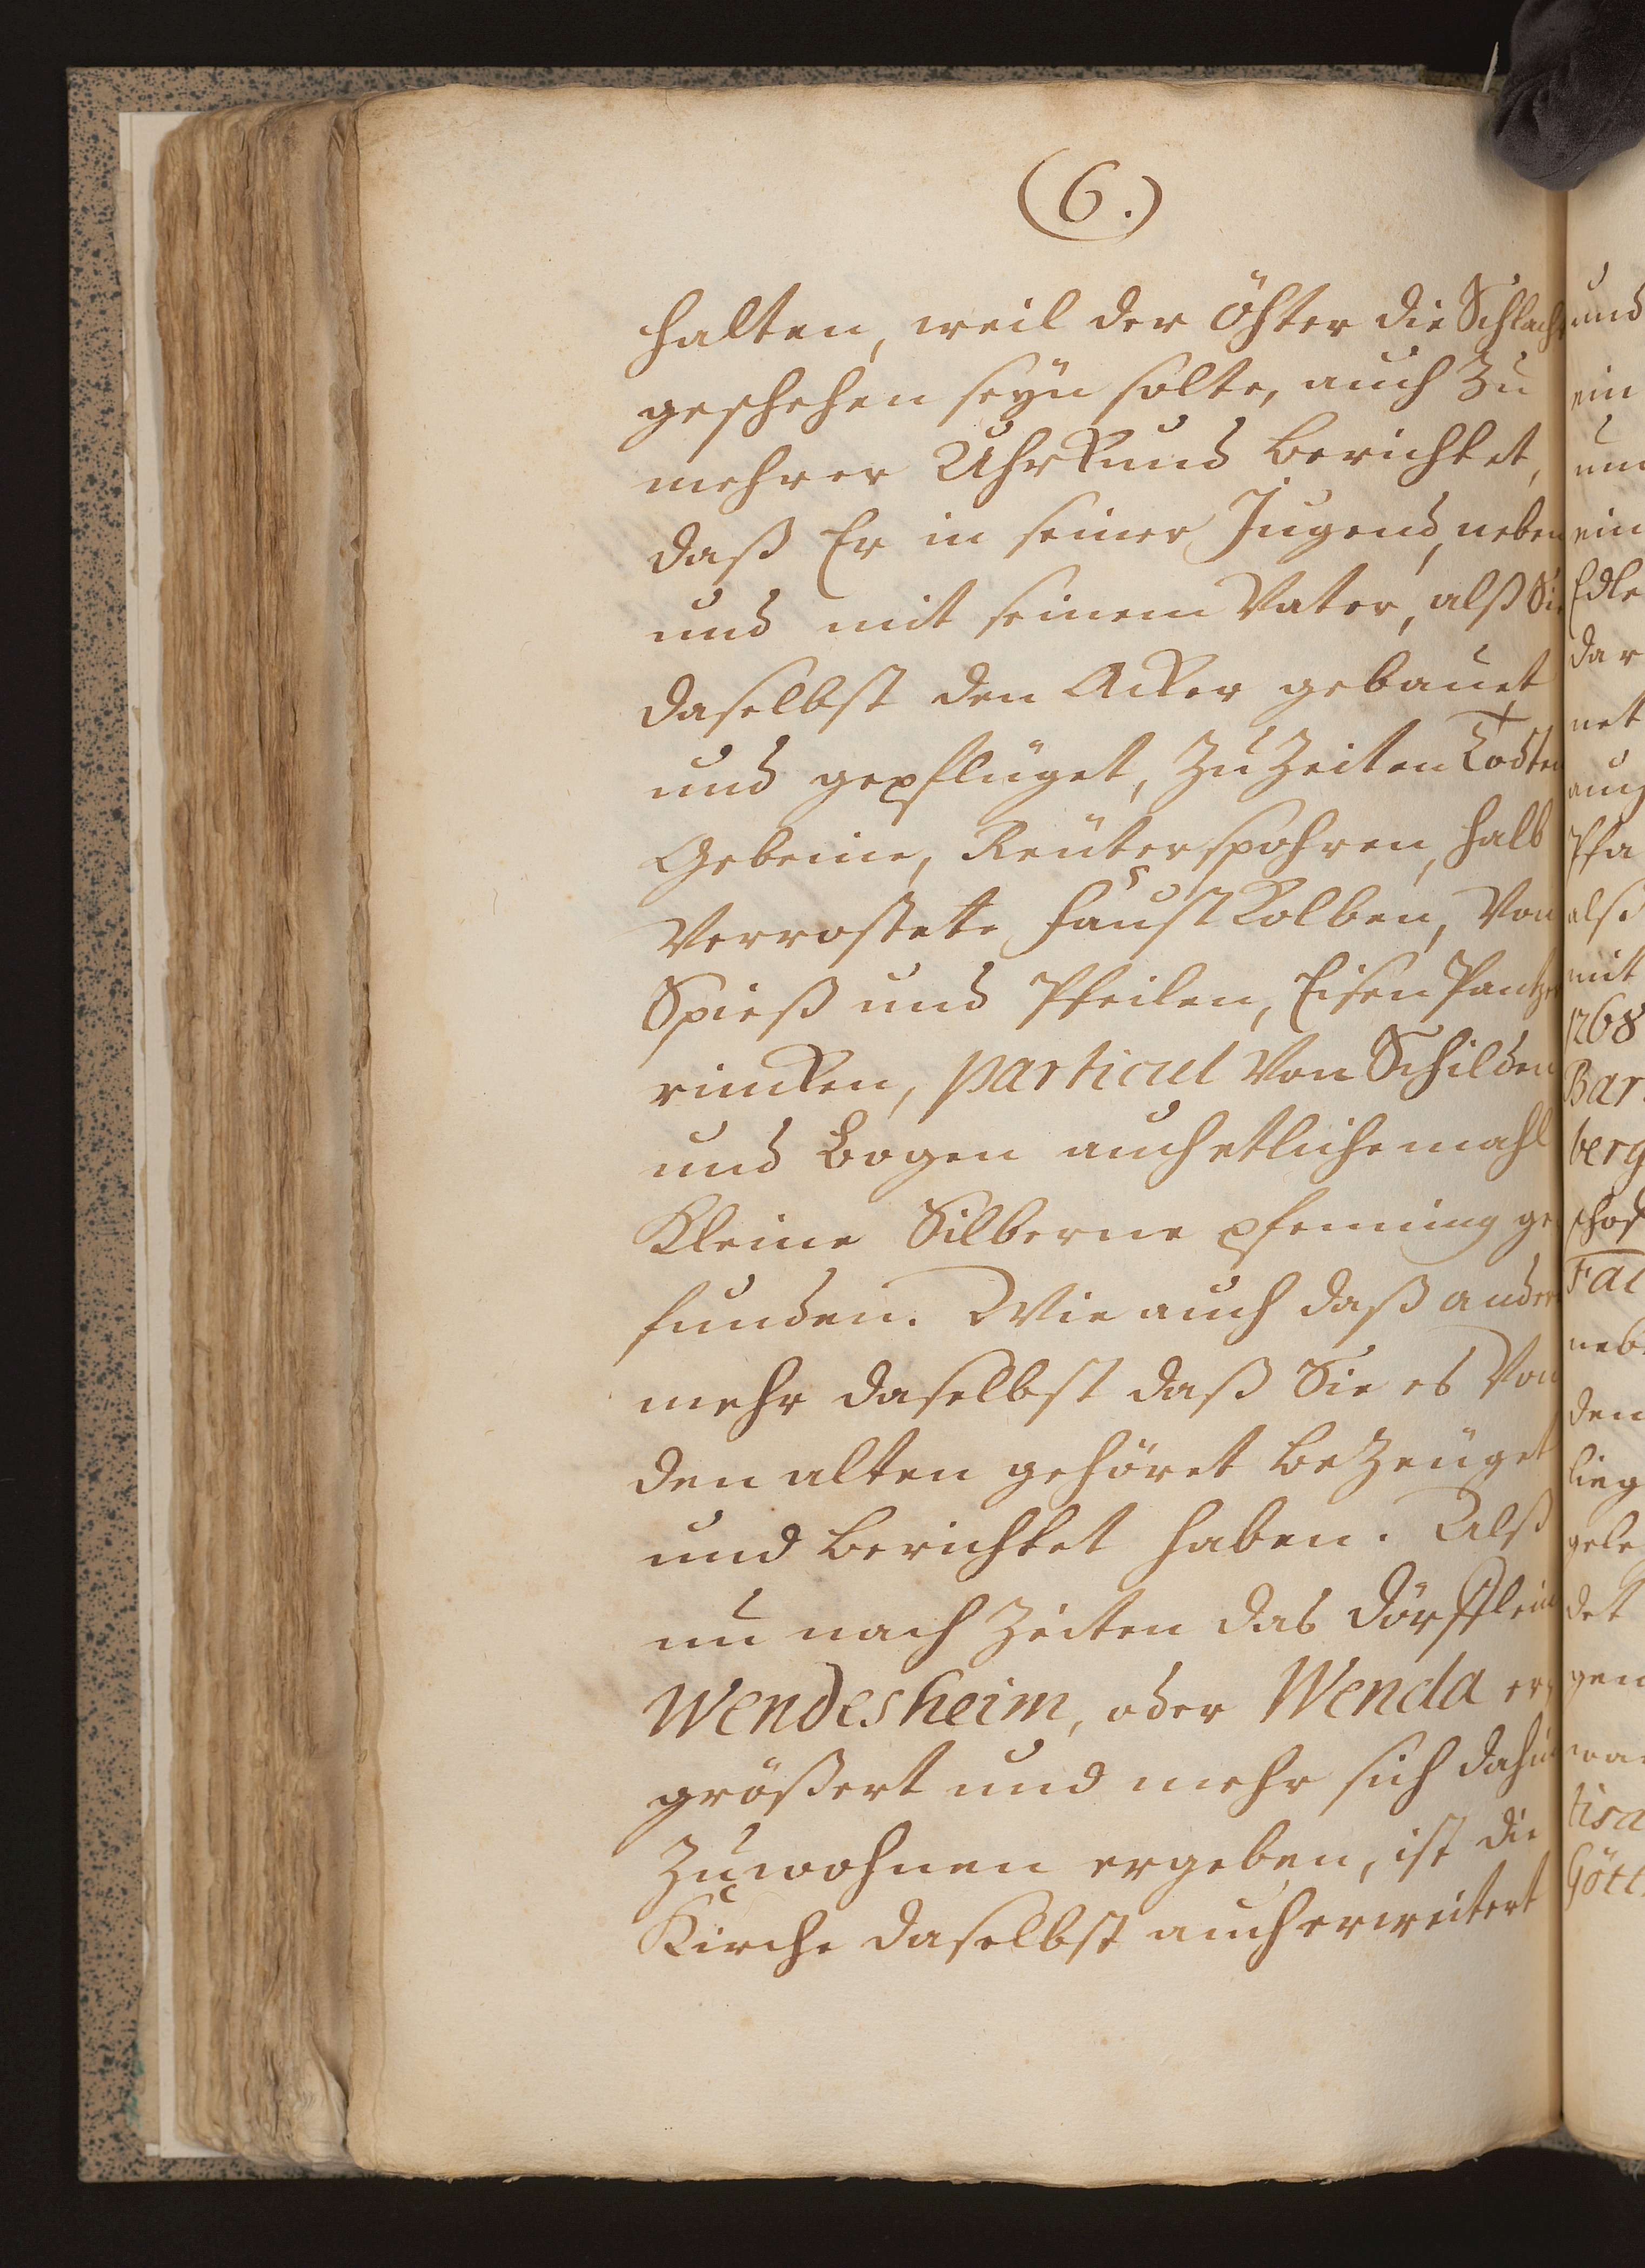 (6.)
halten, weil der öhter die Schlacht
geschehen seÿn solte, auch Zu
mehrer Uhrkund berichtet,
daß Er in seiner Jugend, neben
und mit seinem Vater, alß Sie
daselbst den Acker gebauet
und gepflüget, Zu Zeiten Todten
Gebeine, Reüterspohren, halb
Verrostete Faustkolben, Von
Spieß und Pfeilen, Eisen Pantzer
rincken, particul Von Schilden
und Bogen auch etlichemahl
Kleine Silberne pfenning ge
funden. Wie auch daß ander
mehr daselbst daß Sie es Von
den alten gehöret beZeüget
und berichtet haben. Alß
nu nach Zeiten das dörfflein
Wendesheim, oder Wenda er
größert und mehr sich dahin
Zuwohnen ergeben, ist die
Kirche daselbst auch erweitert
und
ein
ein
Edle
dar
net
auch
Pfa
alß
mit
1268
Bar
berg
schof
Fal
neb
den
lieg
gele
det
gen
wa
tisa
Gött